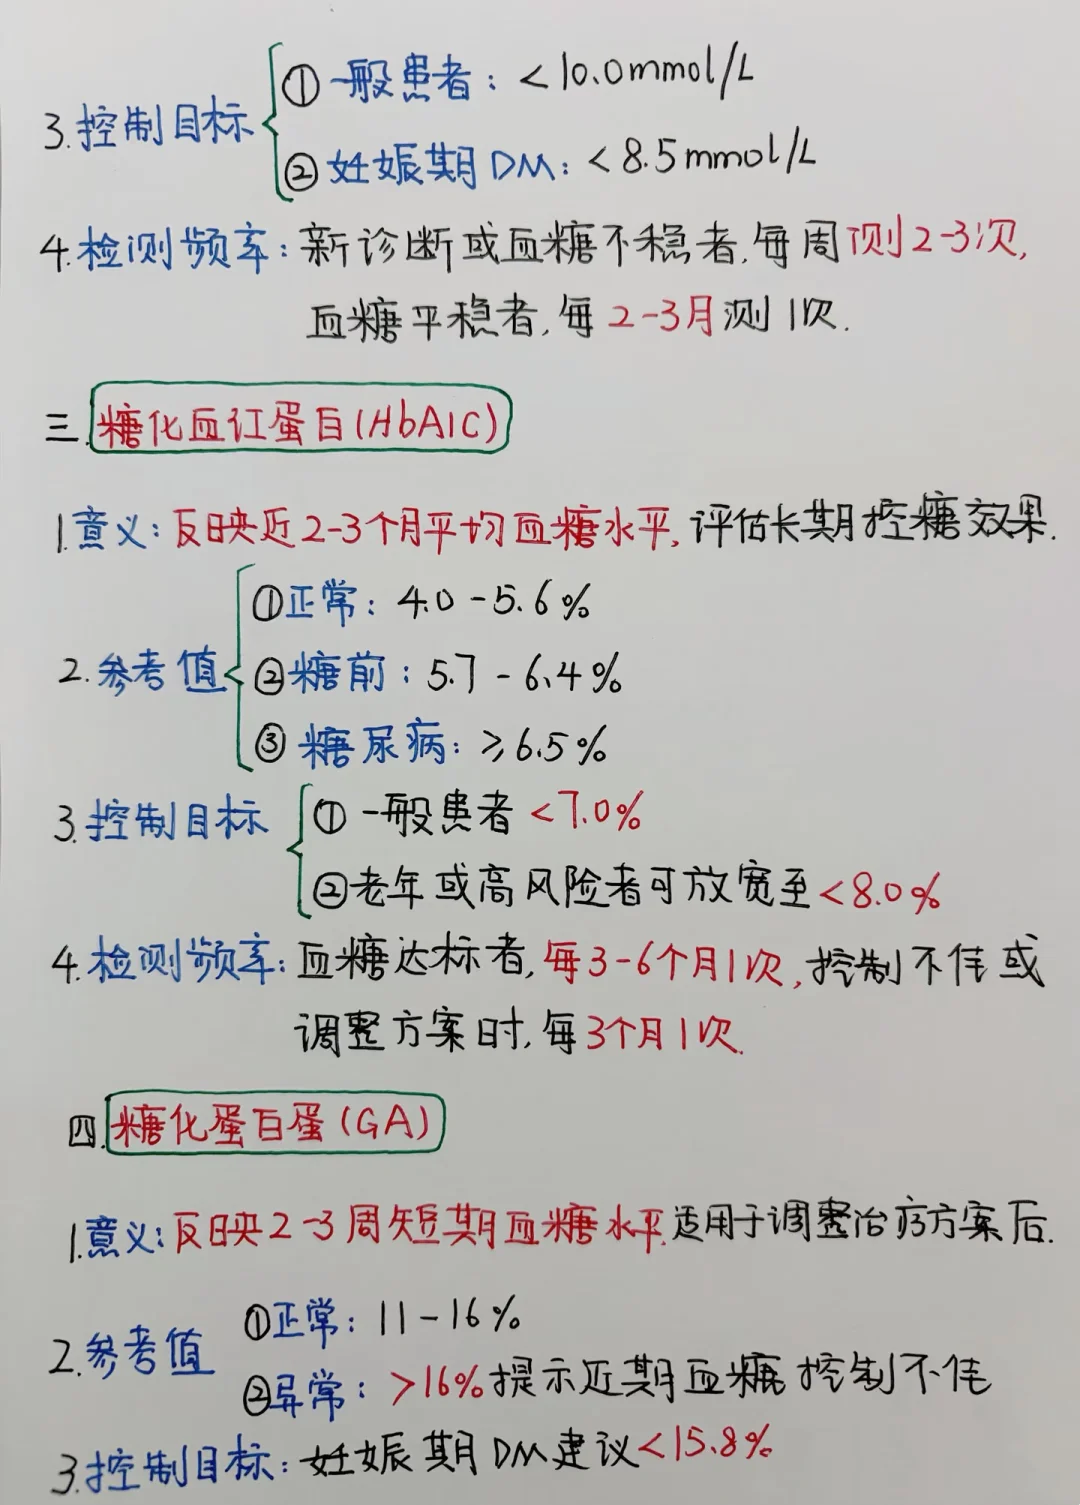 3.控制目标
①一般患者：<10.0mmol/L
②妊娠期DM：<8.5mmol/L
4.检测频率：新诊断或血糖不稳者,每周测2-3次,
血糖平稳者,每2-3月测1次.
三.糖化血红蛋白(HbA1C)
1.意义：反映近2-3个月平均血糖水平,评估长期控糖效果.
2.参考值
①正常：4.0-5.6%
②糖前：5.7-6.4%
③糖尿病：≥6.5%
3.控制目标
①一般患者<7.0%
②老年或高风险者可放宽至<8.0%
4.检测频率：血糖达标者,每3-6个月1次,控制不佳或
调整方案时,每3个月1次.
四.糖化蛋白蛋(GA)
1.意义：反映2-3周短期血糖水平.适用于调整治疗方案后.
2.参考值
①正常：11-16%
②异常：>16%提示近期血糖控制不佳
3.控制目标：妊娠期DM建议<15.8%